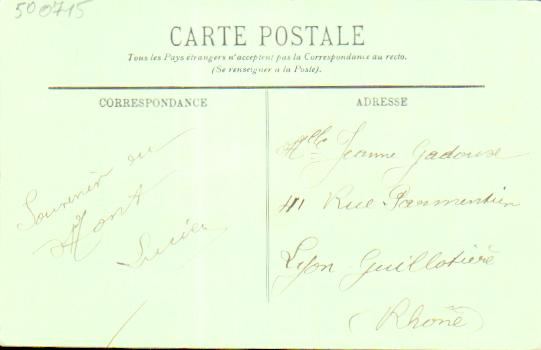 500715
CARTE POSTALE
Tous les Pays étrangers n'acceptent pas la Correspondance au recto.
(Se renseigner à la Poste).
CORRESPONDANCE
ADRESSE
Souvenir du
Mont
Lucien
Mlle Jeanne Gadouse
41 Rue Parmentier
Lyon Guillotière
(Rhône)